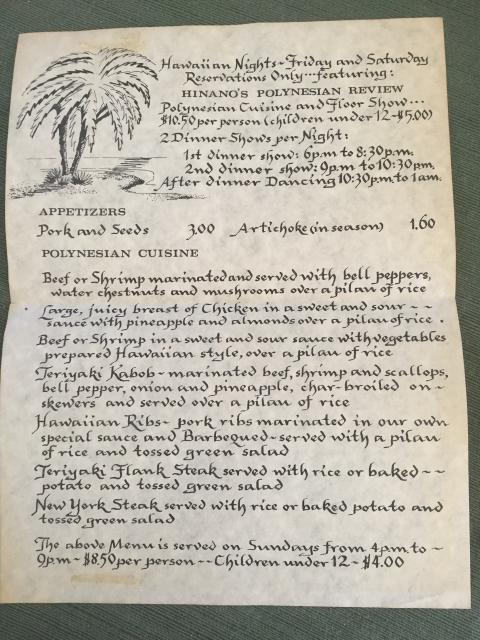 Hawaiian Nights~Friday and Saturday
Reservations Only...featuring:
HINANO'S POLYNESIAN REVIEW
Polynesian Cuisine and Floor Show...
$10.50 per person (children under 12-$5.00)
2 Dinner Shows per Night:
1st dinner show: 6p.m to 8:30p.m.
2nd dinner show: 9p.m to 10:30p.m.
After dinner Dancing 10:30p.m. to 1am.
APPETIZERS
Pork and Seeds 3.00 Artichoke (in season) 1.60
POLYNESIAN CUISINE
Beef or Shrimp marinated and served with bell peppers,
water chestnuts and mushrooms over a pilau of rice
Large, juicy breast of Chicken in a sweet and sour ~~
sauce with pineapple and almonds over a pilau of rice.
Beef or Shrimp in a sweet and sour sauce with vegetables
prepared Hawaiian style, over a pilau of rice
Teriyaki Kabob~marinated beef, shrimp and scallops,
bell pepper, onion and pineapple, char-broiled on~
skewers and served over a pilau of rice
Hawaiian Ribs~ pork ribs marinated in our own
special sauce and Barbequed~served with a pilau
of rice and tossed green salad
Teriyaki Flank Steak served with rice or baked ~~
potato and tossed green salad
New York Steak served with rice or baked potato and
tossed green salad
The above Menu is served on Sundays from 4p.m. to ~
9p.m ~ $8.50 per person ~~ Children under 12 ~ $4.00